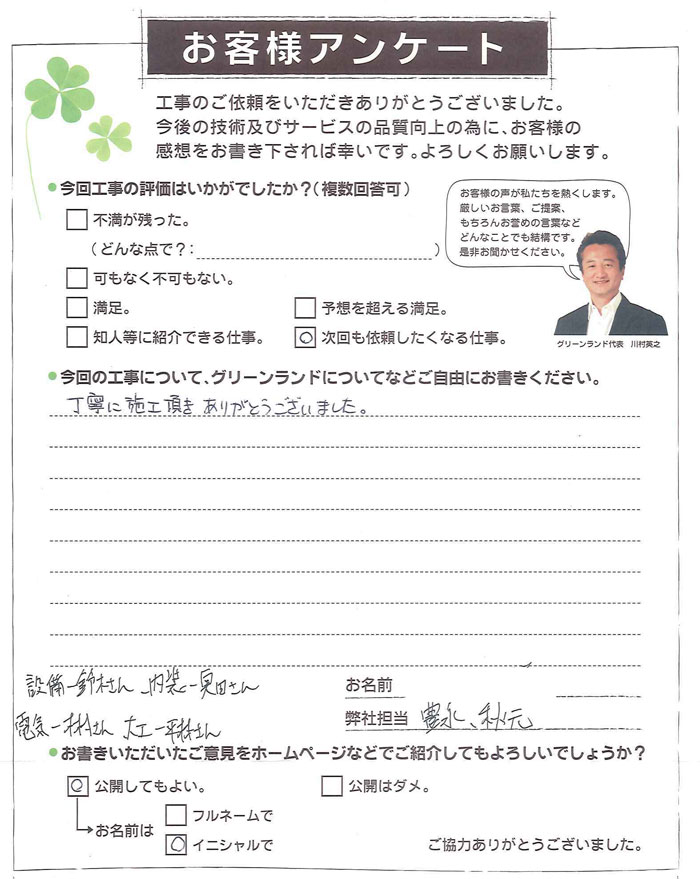 お客様アンケート
工事のご依頼をいただきありがとうございました。
今後の技術及びサービスの品質向上の為に、お客様の
感想をお書き下されば幸いです。よろしくお願いします。
●今回工事の評価はいかがでしたか?(複数回答可)
不満が残った。
(どんな点で?:)
可もなく不可もない。
満足。
予想を超える満足。
知人等に紹介できる仕事。
次回も依頼したくなる仕事。
お客様の声が私たちを熱くします。
厳しいお言葉、ご提案、
もちろんお誉めの言葉など
どんなことでも結構です。
是非お聞かせください。
グリーンランド代表 川村英之
●今回の工事について、グリーンランドについてなどご自由にお書きください。
丁寧に施工頂きありがとうございました。
設備-鈴木さん 内装-奥田さん
お名前
電気-木村さん 大工-平林さん
弊社担当 豊永、秋元
●お書きいただいたご意見をホームページなどでご紹介してもよろしいでしょうか?
公開してもよい。
公開はダメ。
お名前は
フルネームで
イニシャルで
ご協力ありがとうございました。